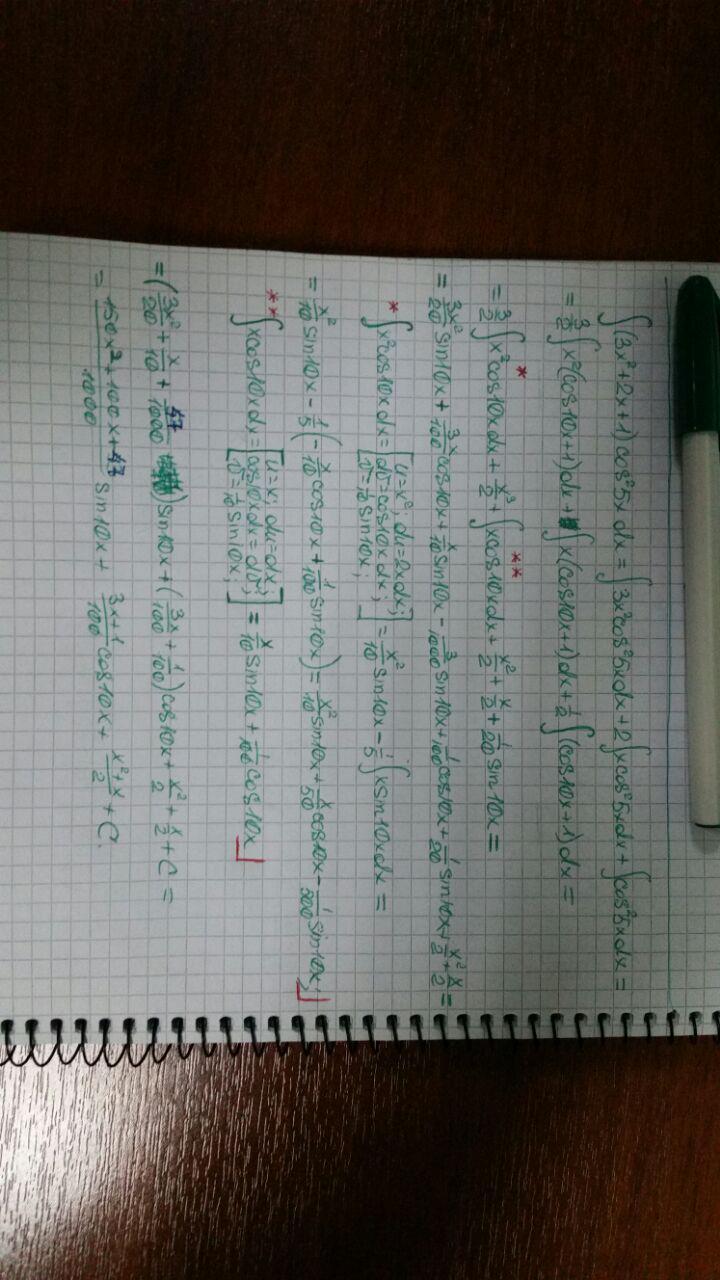 ∫(3x²+2x+1)cos²5x dx = ∫3x²cos²5xdx + 2∫xcos²5xdx + ∫cos²5xdx =
= 3/2 ∫x²(cos10x+1)dx + ∫x(cos10x+1)dx + 1/2 ∫(cos10x+1)dx =
= 3/2 ∫*x²cos10xdx + x³/2 + ∫**xcos10xdx + x²/2 + x/2 + 1/20 sin10x =
= 3x²/20 sin10x + 3x/100 cos10x + x/10 sin10x - 3/1000 sin10x + 1/100 cos10x + 1/20 sin10x + x²/2 + x/2 =
* ∫x²cos10xdx = [u=x²; du=2xdx; dv=cos10xdx; v=1/10 sin10x;] = x²/10 sin10x - 1/5 ∫xsin10xdx =
= x²/10 sin10x - 1/5 (- x/10 cos10x + 1/100 sin10x) = x²/10 sin10x + x/50 cos10x - 1/500 sin10x;
** ∫xcos10xdx = [u=x; du=dx; cos10xdx=dv; v=1/10 sin10x;] = x/10 sin10x + 1/100 cos10x
= (3x²/20 + x/10 + 47/1000) sin10x + (3x/100 + 1/100) cos10x + x²/2 + x/2 + C =
= (150x²+100x+47)/1000 sin10x + (3x+1)/100 cos10x + (x²+x)/2 + C.